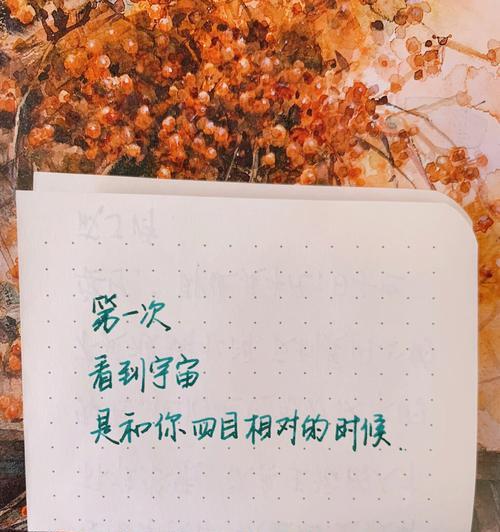 第一次
看到宇宙
是和你四目相对的时候